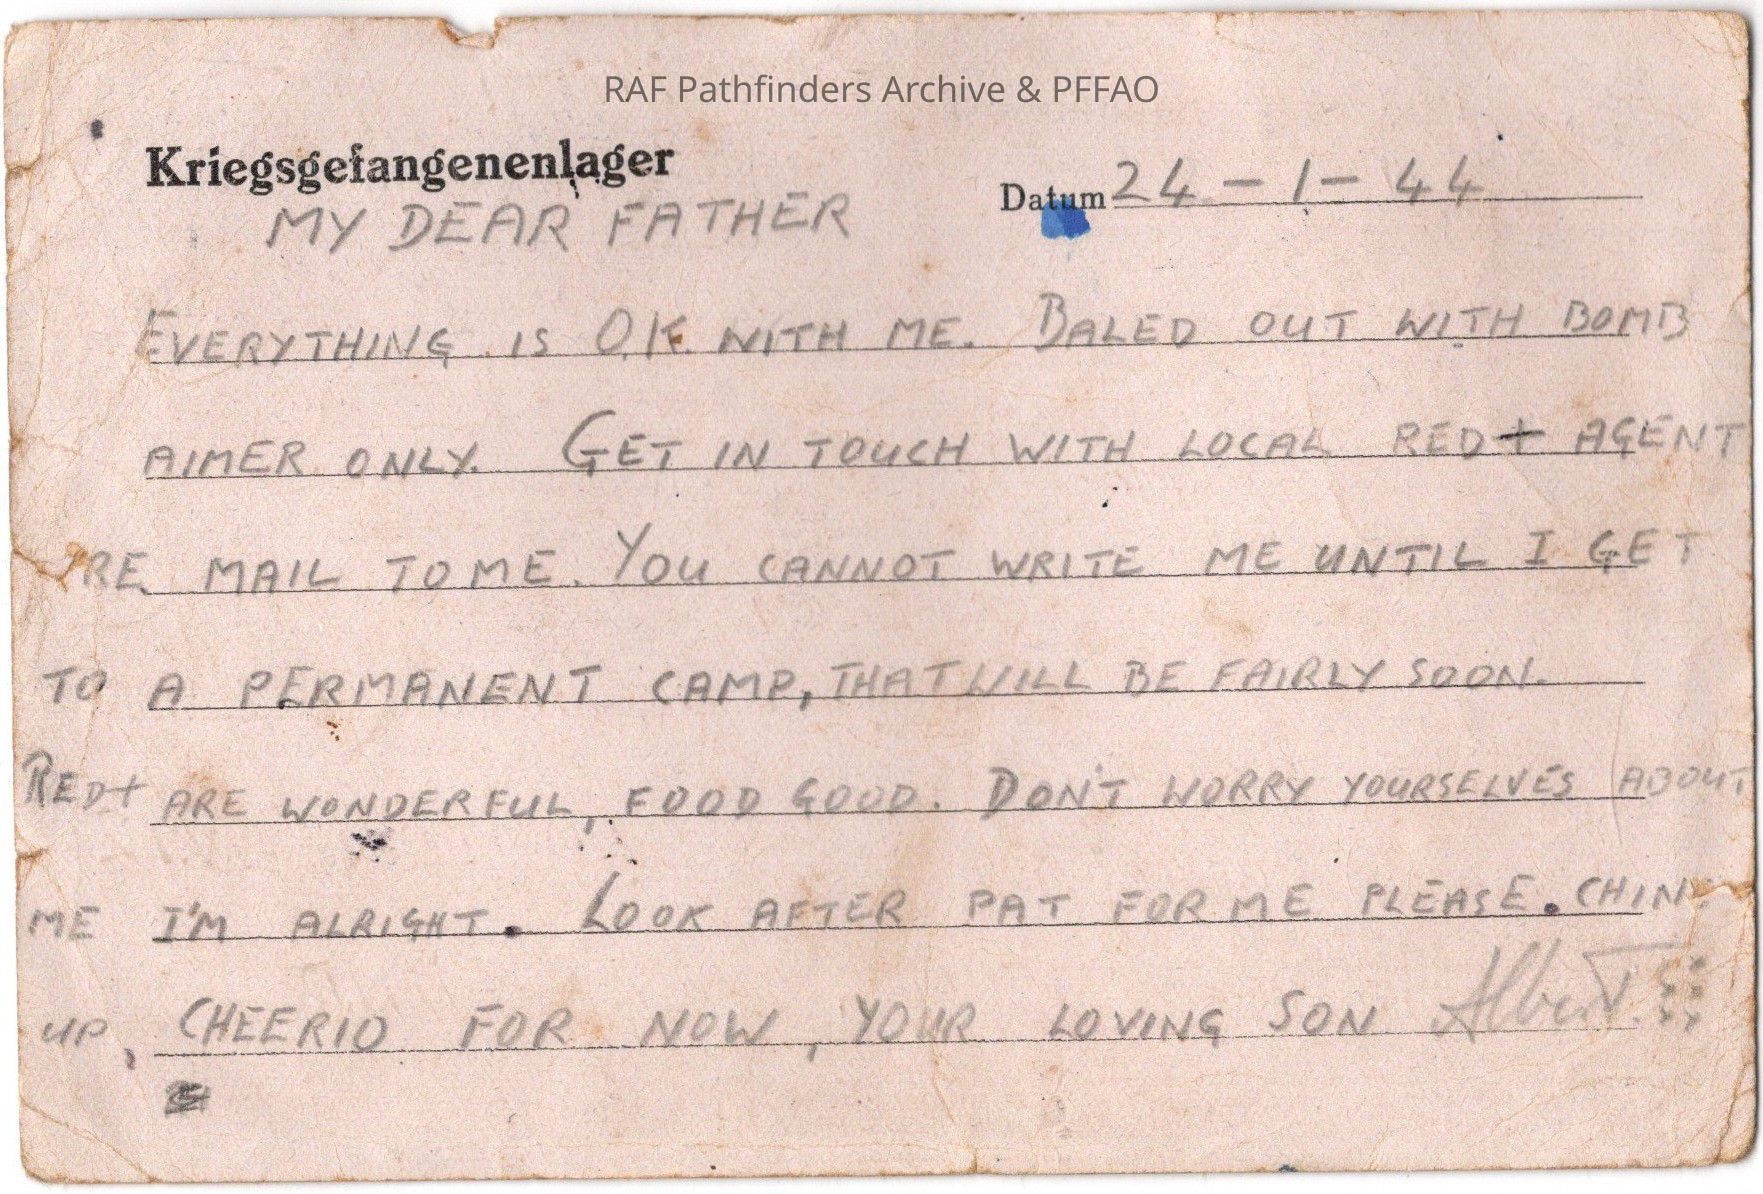 RAF Pathfinders Archive & PFFAO
Kriegsgefangenenlager
Datum 24-1-44
MY DEAR FATHER
EVERYTHING IS O.K. WITH ME. BALED OUT WITH BOMB
AIMER ONLY. GET IN TOUCH WITH LOCAL RED + AGENT
RE MAIL TO ME. YOU CANNOT WRITE ME UNTIL I GET
TO A PERMANENT CAMP, THAT WILL BE FAIRLY SOON.
RED + ARE WONDERFUL, FOOD GOOD. DON'T WORRY YOURSELVES ABOUT
ME I'M ALRIGHT. LOOK AFTER PAT FOR ME PLEASE. CHIN
UP, CHEERIO FOR NOW, YOUR LOVING SON Albert.